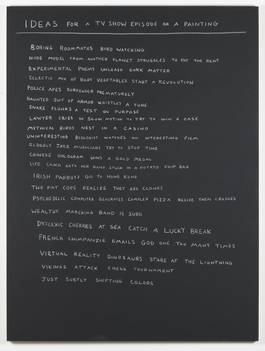 IDEAS FOR A TV SHOW EPISODE OR A PAINTING
BORING ROOMMATES BIRD WATCHING
NUDE MODEL FROM ANOTHER PLANET STRUGGLES TO PAY THE RENT
EXPERIMENTAL POEMS UNLEASH DARK MATTER
ECLECTIC MIX OF BABY VEGETABLES START A REVOLUTION
POLICE APES SURRENDER PREMATURELY
HAUNTED SUIT OF ARMOR WHISTLES A TUNE
SNAKE FLUNKS A TEST ON PURPOSE
LAWYER CRIES IN SLOW MOTION TO TRY TO WIN A CASE
MYTHICAL BIRDS NEST IN A CASINO
UNINTERESTING BIOLOGIST WATCHES AN INTERESTING FILM
ELDERLY JAZZ MUSICIANS TRY TO STOP TIME
CONCISE HOLOGRAM WINS A GOLD MEDAL
LIFE COACH GETS HER HAND STUCK IN A POTATO CHIP BAG
IRISH PARROTS GO TO HONG KONG
TWO FAT COPS REALIZE THEY ARE CLONES
PSYCHEDELIC COMPUTER GENERATES COMPLEX PIZZA BEFORE THEN CRASHES
WEALTHY MARCHING BAND IS SUED
DYSLEXIC CHEFS AT SEA CATCH A LUCKY BREAK
FRENCH CHIMPANZEE EMAILS GOD ONE TOO MANY TIMES
VIRTUAL REALITY DINOSAURS STARE AT THE LIGHTNING
VIKINGS ATTACK CHESS TOURNAMENT
JUST SUBTLY SHIFTING COLORS